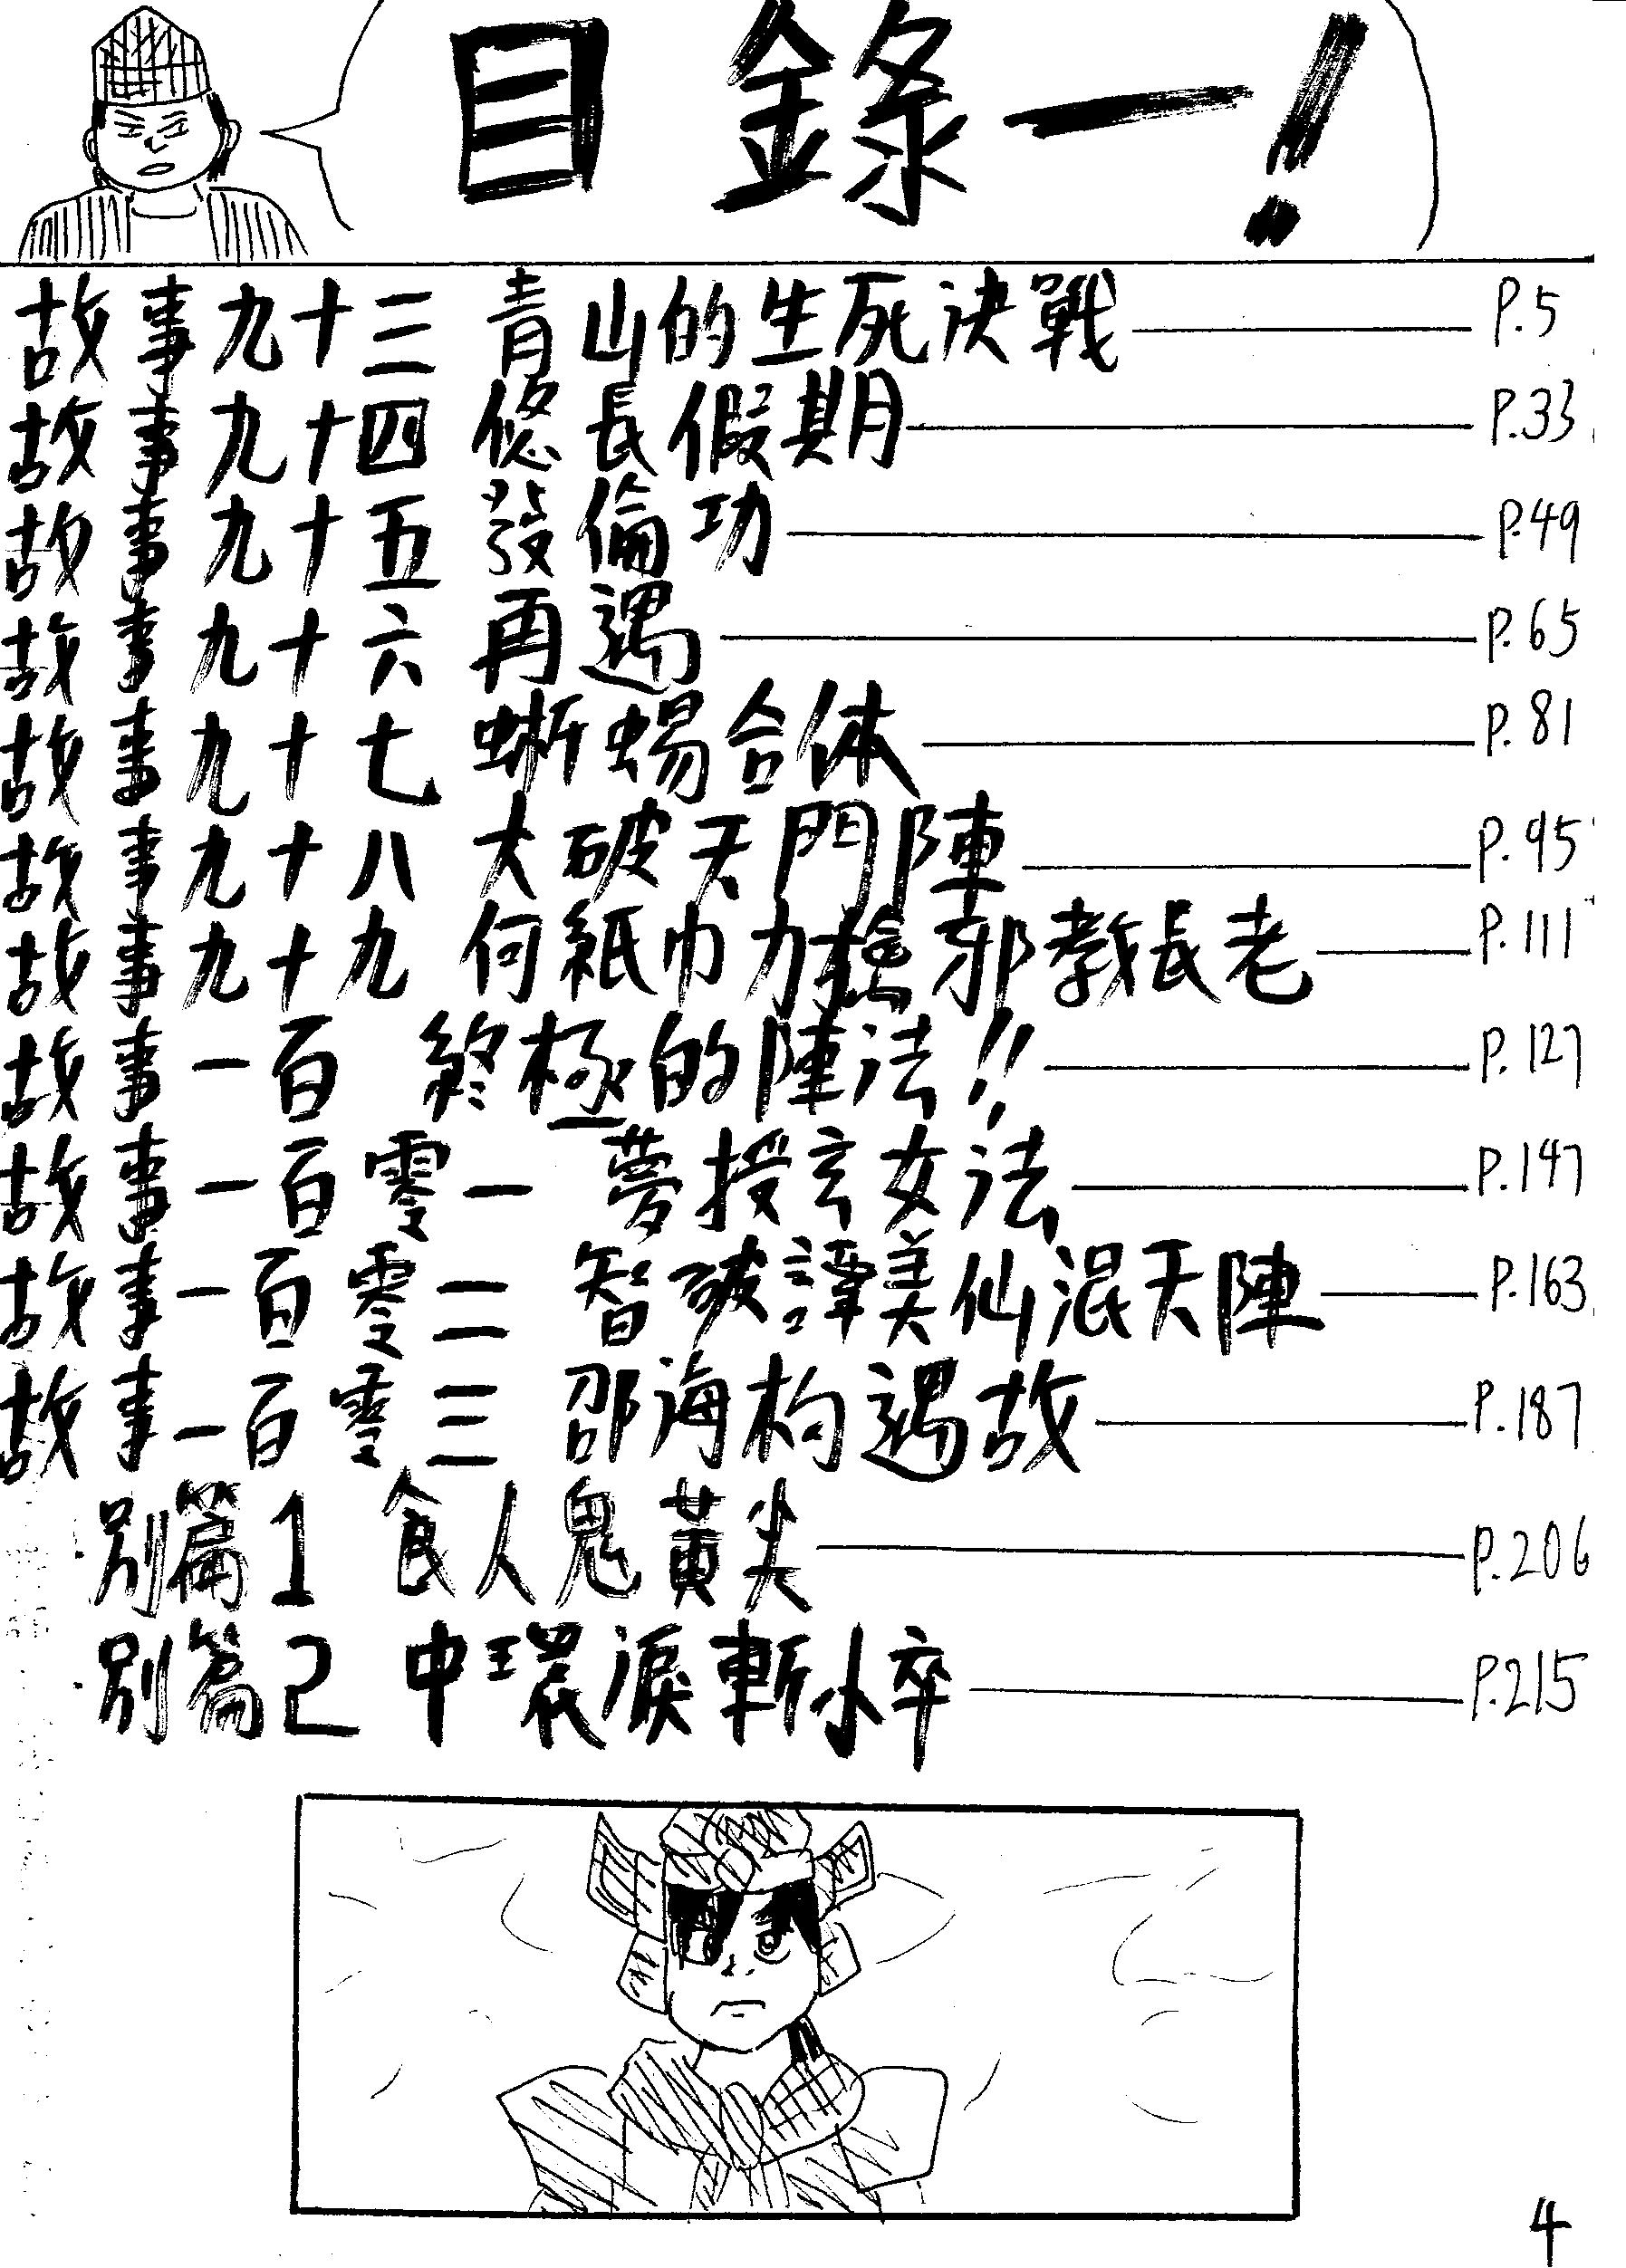 目錄一!
故事九十三 青山的生死決戰 P.5
故事九十四 悠長假期 P.33
故事九十五 發倫功 P.49
故事九十六 再遇 P.65
故事九十七 蜥蜴合体 P.81
故事九十八 大破天門陣 P.95
故事九十九 何紙巾力擒邪教長老 P.111
故事一百 終極的陣法!! P.127
故事一百零一 夢授玄女法 P.147
故事一百零二 智破譚美仙混天陣 P.163
故事一百零三 邵海枃遇故 P.187
別篇1 食人鬼黃尖 P.206
別篇2 中環淚斬小卒 P.215
4